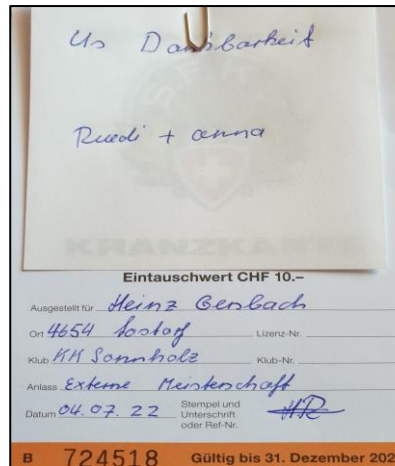 Us Dankbarkeit
Ruedi + Anna
KRANZKARTE
Eintauschwert CHF 10.–
Ausgestellt für Heinz Gersbach
Ort 4654 Lostorf Lizenz-Nr.
Klub KK Sonnholz Klub-Nr.
Anlass Externe Meisterschaft
Datum 04.07.22 Stempel und
Unterschrift
oder Ref-Nr.
B 724518 Gültig bis 31. Dezember 202